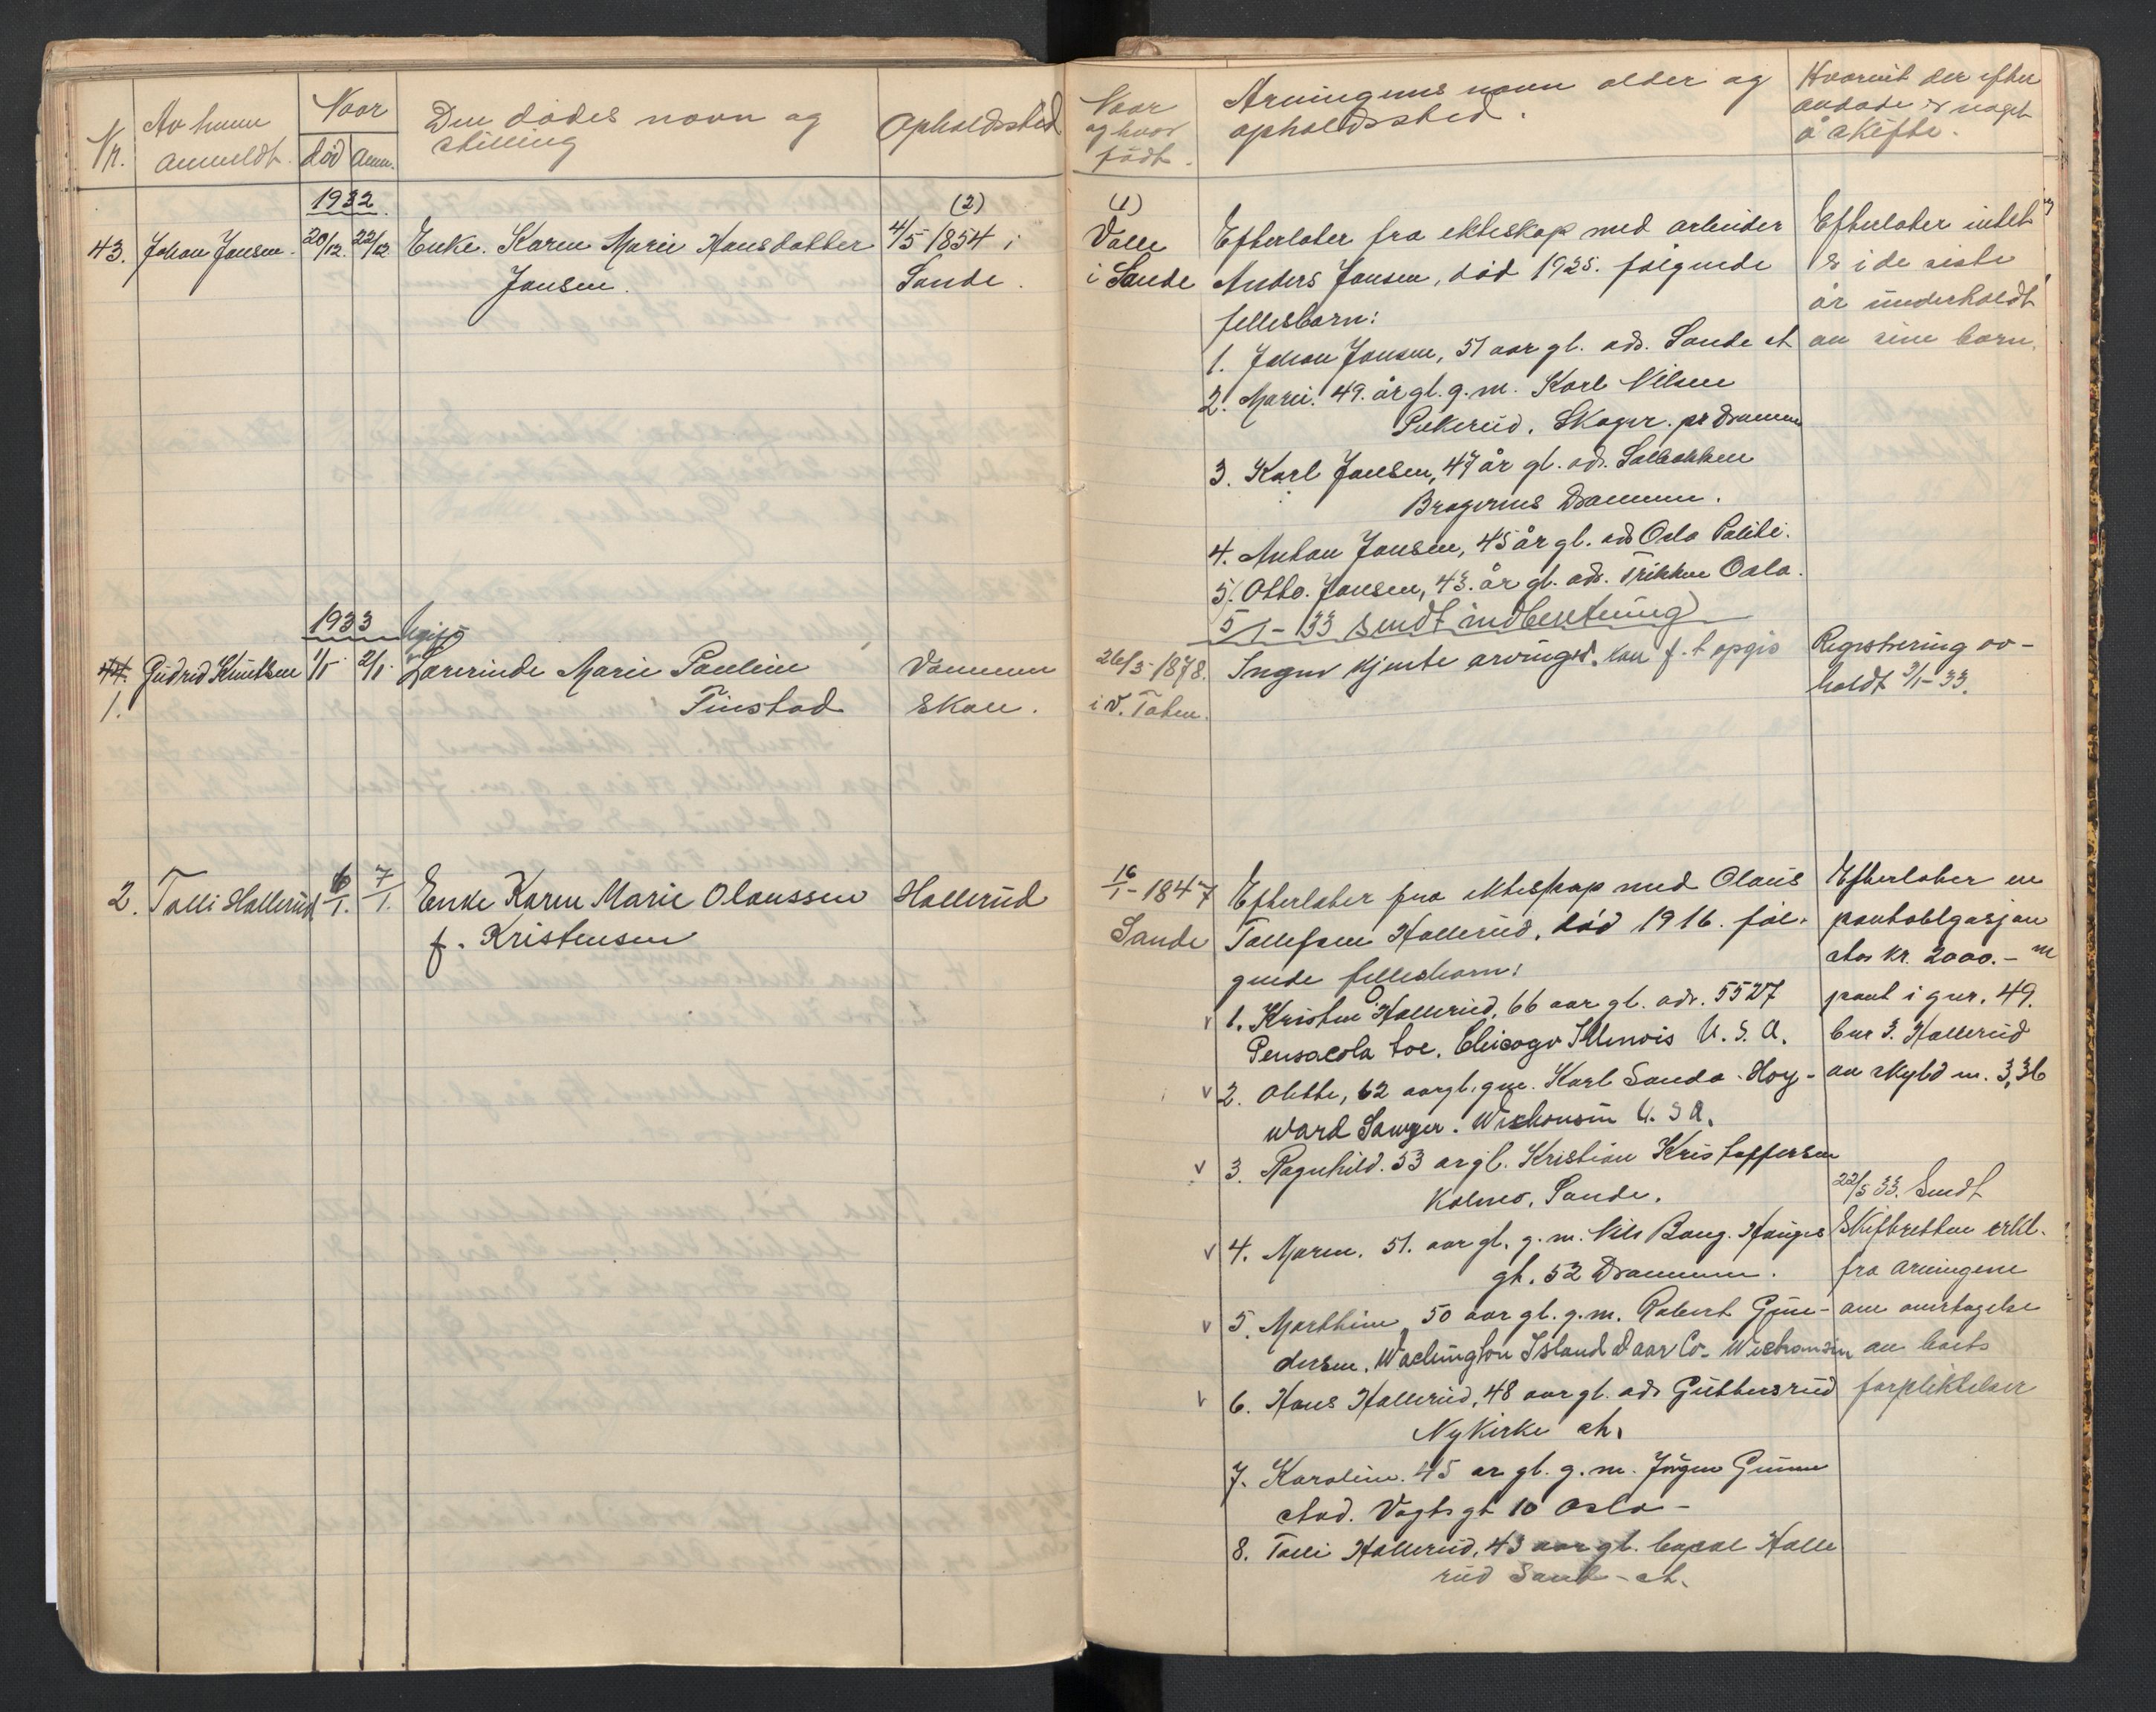 Nr.
Av hvem
anmeldt.
Naar
död
Anm.
Den dödes navn og
stilling
Opholdssted
Naar
og hvor
födt.
Arvingenes navn alder og
opholdssted.
Hvorvit der efter
avdöde er noget
å skifte.
1932
43. Johan Jansen. 20/12. 22/12 Enke. Karen Marie Hansdatter
Jansen.
(2)
4/5 1854 i
Sande.
(1)
Valle
i Sande
Efterlater fra ekteskap med arbeider
Anders Jansen, död 1925. fölgende
fellesbarn:
1. Johan Jansen, 51 aar gl. adr. Sande st
2. Marie. 49. år gl. g. m. Karl Nilsen
Pukerud. Skoger. pr Drammen
3. Karl Jansen, 47 år gl. adr. Solbakken
Bragernes Drammen.
4. Anton Jansen, 45 år gl. adr Oslo Politi.
5. Otto. Jansen, 43. år gl. adr. Trikken Oslo.
5/1-33 sendt indberetning
Efterlater intet
er i de siste
år underholdt
av sine barn.
1933
44. Gudrid Knutsen 1/1 2/1. Lærerinde Marie Pauline
1.
Finstad
Vammen
Skole.
26/5-1878.
i V. Toten.
Ingen kjente arvinger. kan f. t. opgis
Registrering av-
holdt 3/1-33.
2. Talli Hallerud 6/1. 7/1. Enke Karen Marie Olaussen
f. Kristensen
Hallerud
16/1-1847
Sande
Efterlater fra ekteskap med Olaus
Tollefsen Hallerud, död 1916. föl-
gende fellesbarn:
v 1. Kristen O Hallerud, 66 aar gl. adr. 5527
Pensacola toe. Chicago Illinois U. S. A.
v 2. Olette, 62 aar gl. g.m. Karl Sanda. Hoy-
ward Sawyer. Wiskonsin U. S A.
v 3. Ragnhild. 53 ar gl. Kristian Kristoffersen
Kolmo, Sande.
v 4. Maren. 51. aar gl. g. m. Nils Bang. Hauges
gt. 52 Drammen.
v 5. Marthine 50 aar gl. g. m. Robert Gun-
dersen. Wachington Island Daar Co. Wisconsin
v 6. Hans Hallerud, 48 aar gl. adr Guttersrud
Nykirke st.
7. Karoline. 45 ar gl. g. m. Jörgen Gunne
stad. Vogts gt 10 Oslo -
8. Talli Hallerud, 43 aar gl. bopæl Halle
rud Sande - st.
Efterlater en
pantobligasjon
stor kr. 2000.- m
pant i gnr. 49.
bnr 3. Hallerud
av skyld m. 3,36
22/5 33. Sendt
Skifteretten erkl.
fra arvingene
om overtagelse
av boets
forpliktelser